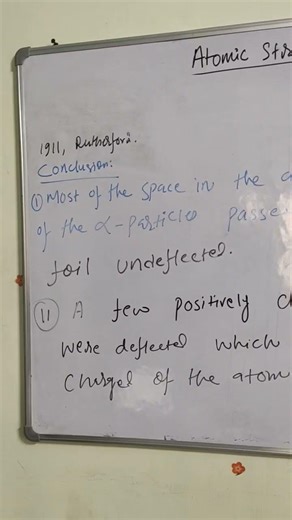 Atomic
1911, Rutherford.
Conclusion:
① Most of the space in the
of the α-particles passe
foil undeflected.
⑪ A few positively
were deflected which
Charged of the atom